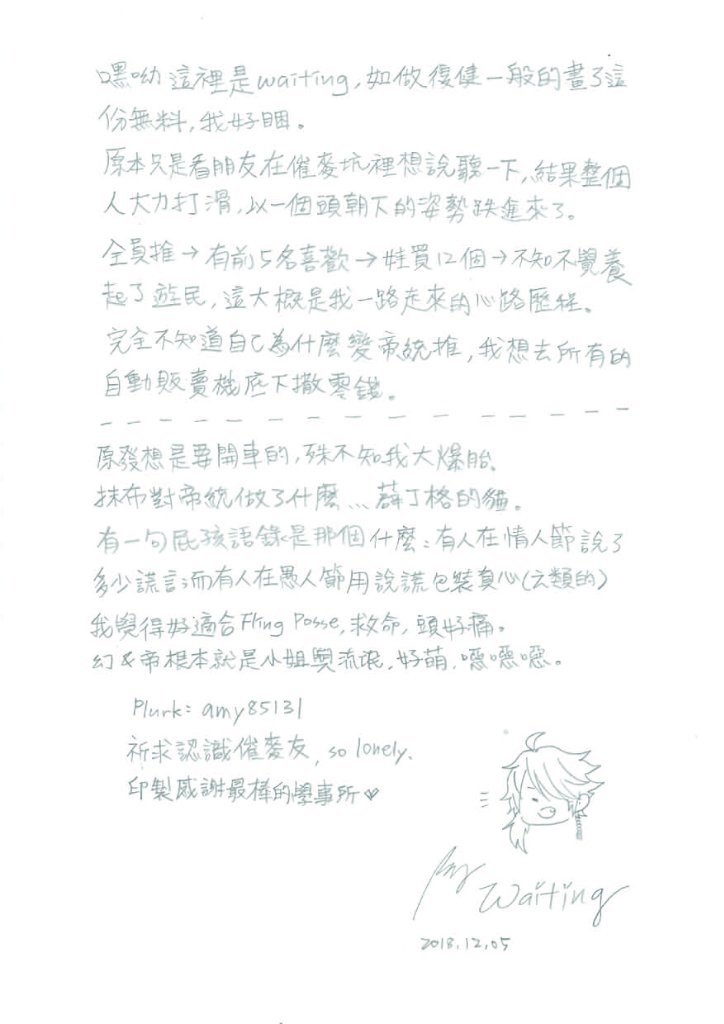 嘿呦 這裡是waiting, 如做復健一般的畫了這
份無料, 我好睏。
原本只是看朋友在催麥坑裡想說聽一下, 結果整個
人大力打滑, 以一個頭朝下的姿勢跌進來了。
全員推→有前5名喜歡→娃買12個→不知不覺養
起了遊民, 這大概是我一路走來的心路歷程。
完全不知道自己為什麼變帝統推, 我想去所有的
自動販賣機底下撒零錢。
原發想是要開車的, 殊不知我大爆胎。
抹布對帝統做了什麼... 薛丁格的貓。
有一句屁孩語錄是那個什麼: 有人在情人節說了
多少謊言; 而有人在愚人節用說謊包裝真心(之類的)
我覺得好適合Fling Posse, 救命, 頭好痛。
幻&帝根本就是小姐與流氓, 好萌, 噁噁噁。
Plurk: amy85131
祈求認識催麥友, so lonely.
印製感謝最棒的學事所♥
Waiting
2018.12.05